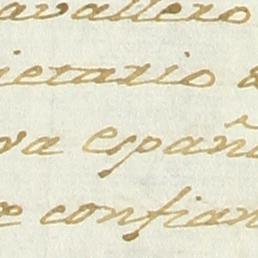 avallero
ietario
va españ
confian